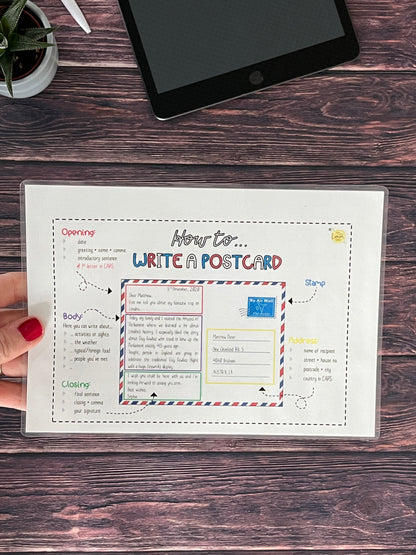 How to...
WRITE A POSTCARD
Opening:
date
greeting + name + comma
introductory sentence
1st letter in CAPS
Body:
Here you can write about...
... activities or sights
... the weather
... typical/foreign food
... people you met
Closing:
final sentence
closing + comma
your signature
5th November, 2020
Dear Matthew,
Let me tell you about my fantastic trip to
London...
Today, my family and I visited the Houses of
Parliament where we learned a lot about
London's history. I especially liked the story
about Guy Fawkes who tried to blow up the
Parliament exactly 415 years ago.
Tonight, people in England are going to
celebrate the traditional Guy Fawkes Night
with a huge (firework) display.
I wish you could be here with us and I'm
looking forward to seeing you soon.
Best wishes,
Sophie
By Air Mail
Matthew
New
AUSTRIA
Stamp
Address:
name of recipient
street + house no
postcode + city
country in CAPS